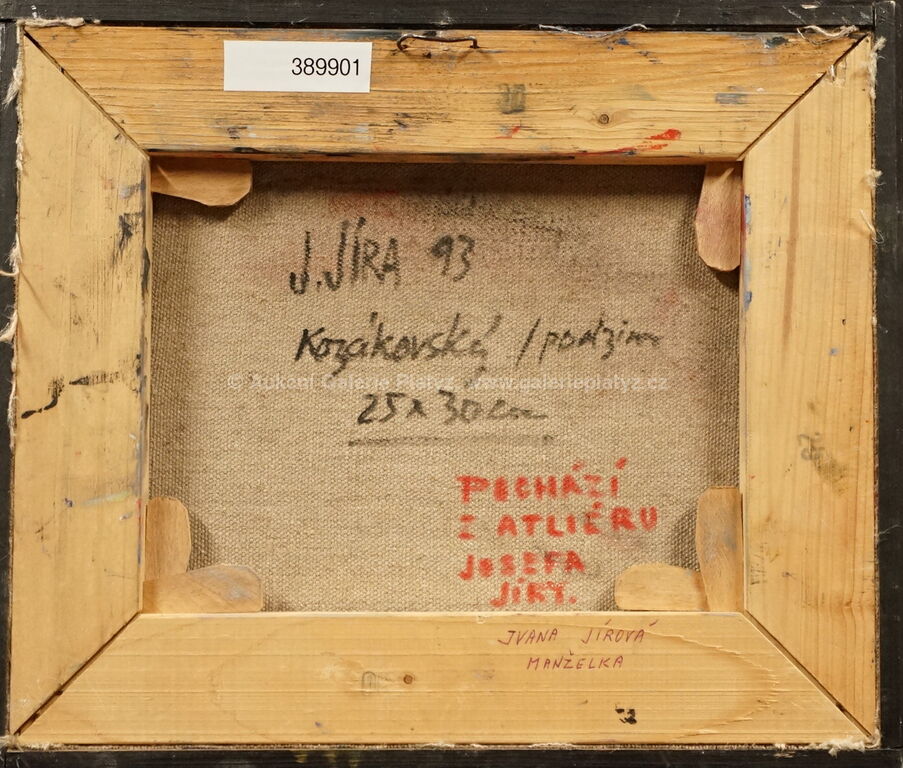 389901
J. JÍRA 93
Kozákovský / podzim
© Aukční Galerie Platýz, www.galerieplatyz.cz
25 x 30 cm
POCHÁZÍ
Z ATLIÉRU
JOSEFA
JÍRY.
IVANA JÍROVÁ
MANŽELKA